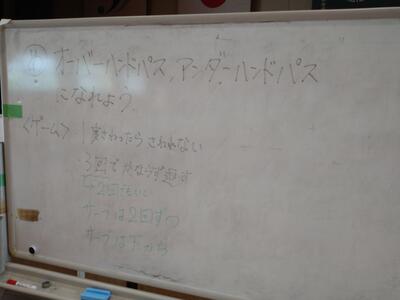 め オーバーハンドパス、アンダーハンドパス
になれよう。
<ゲーム> 1度さわったらさわれない
3回でかならず返す
↳2回でもいい
サーブは2回ずつ
サーブは下から